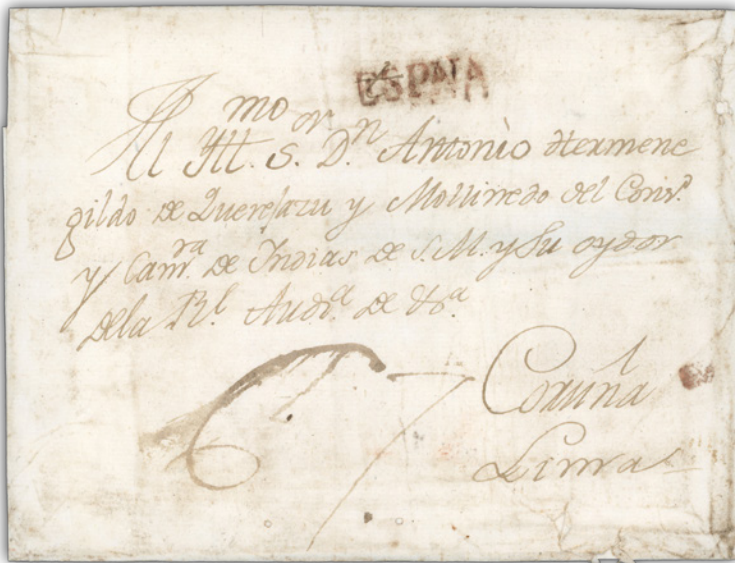 ESPNA
Al Ill.mo S.or D.n Antonio Hermene
gildo de Querejazu y Mollinedo del Cons.o
y Cam.ra de Indias de S. M. y Su oydor
dela R.l Aud.a de &.a
67
Coruña
Lima